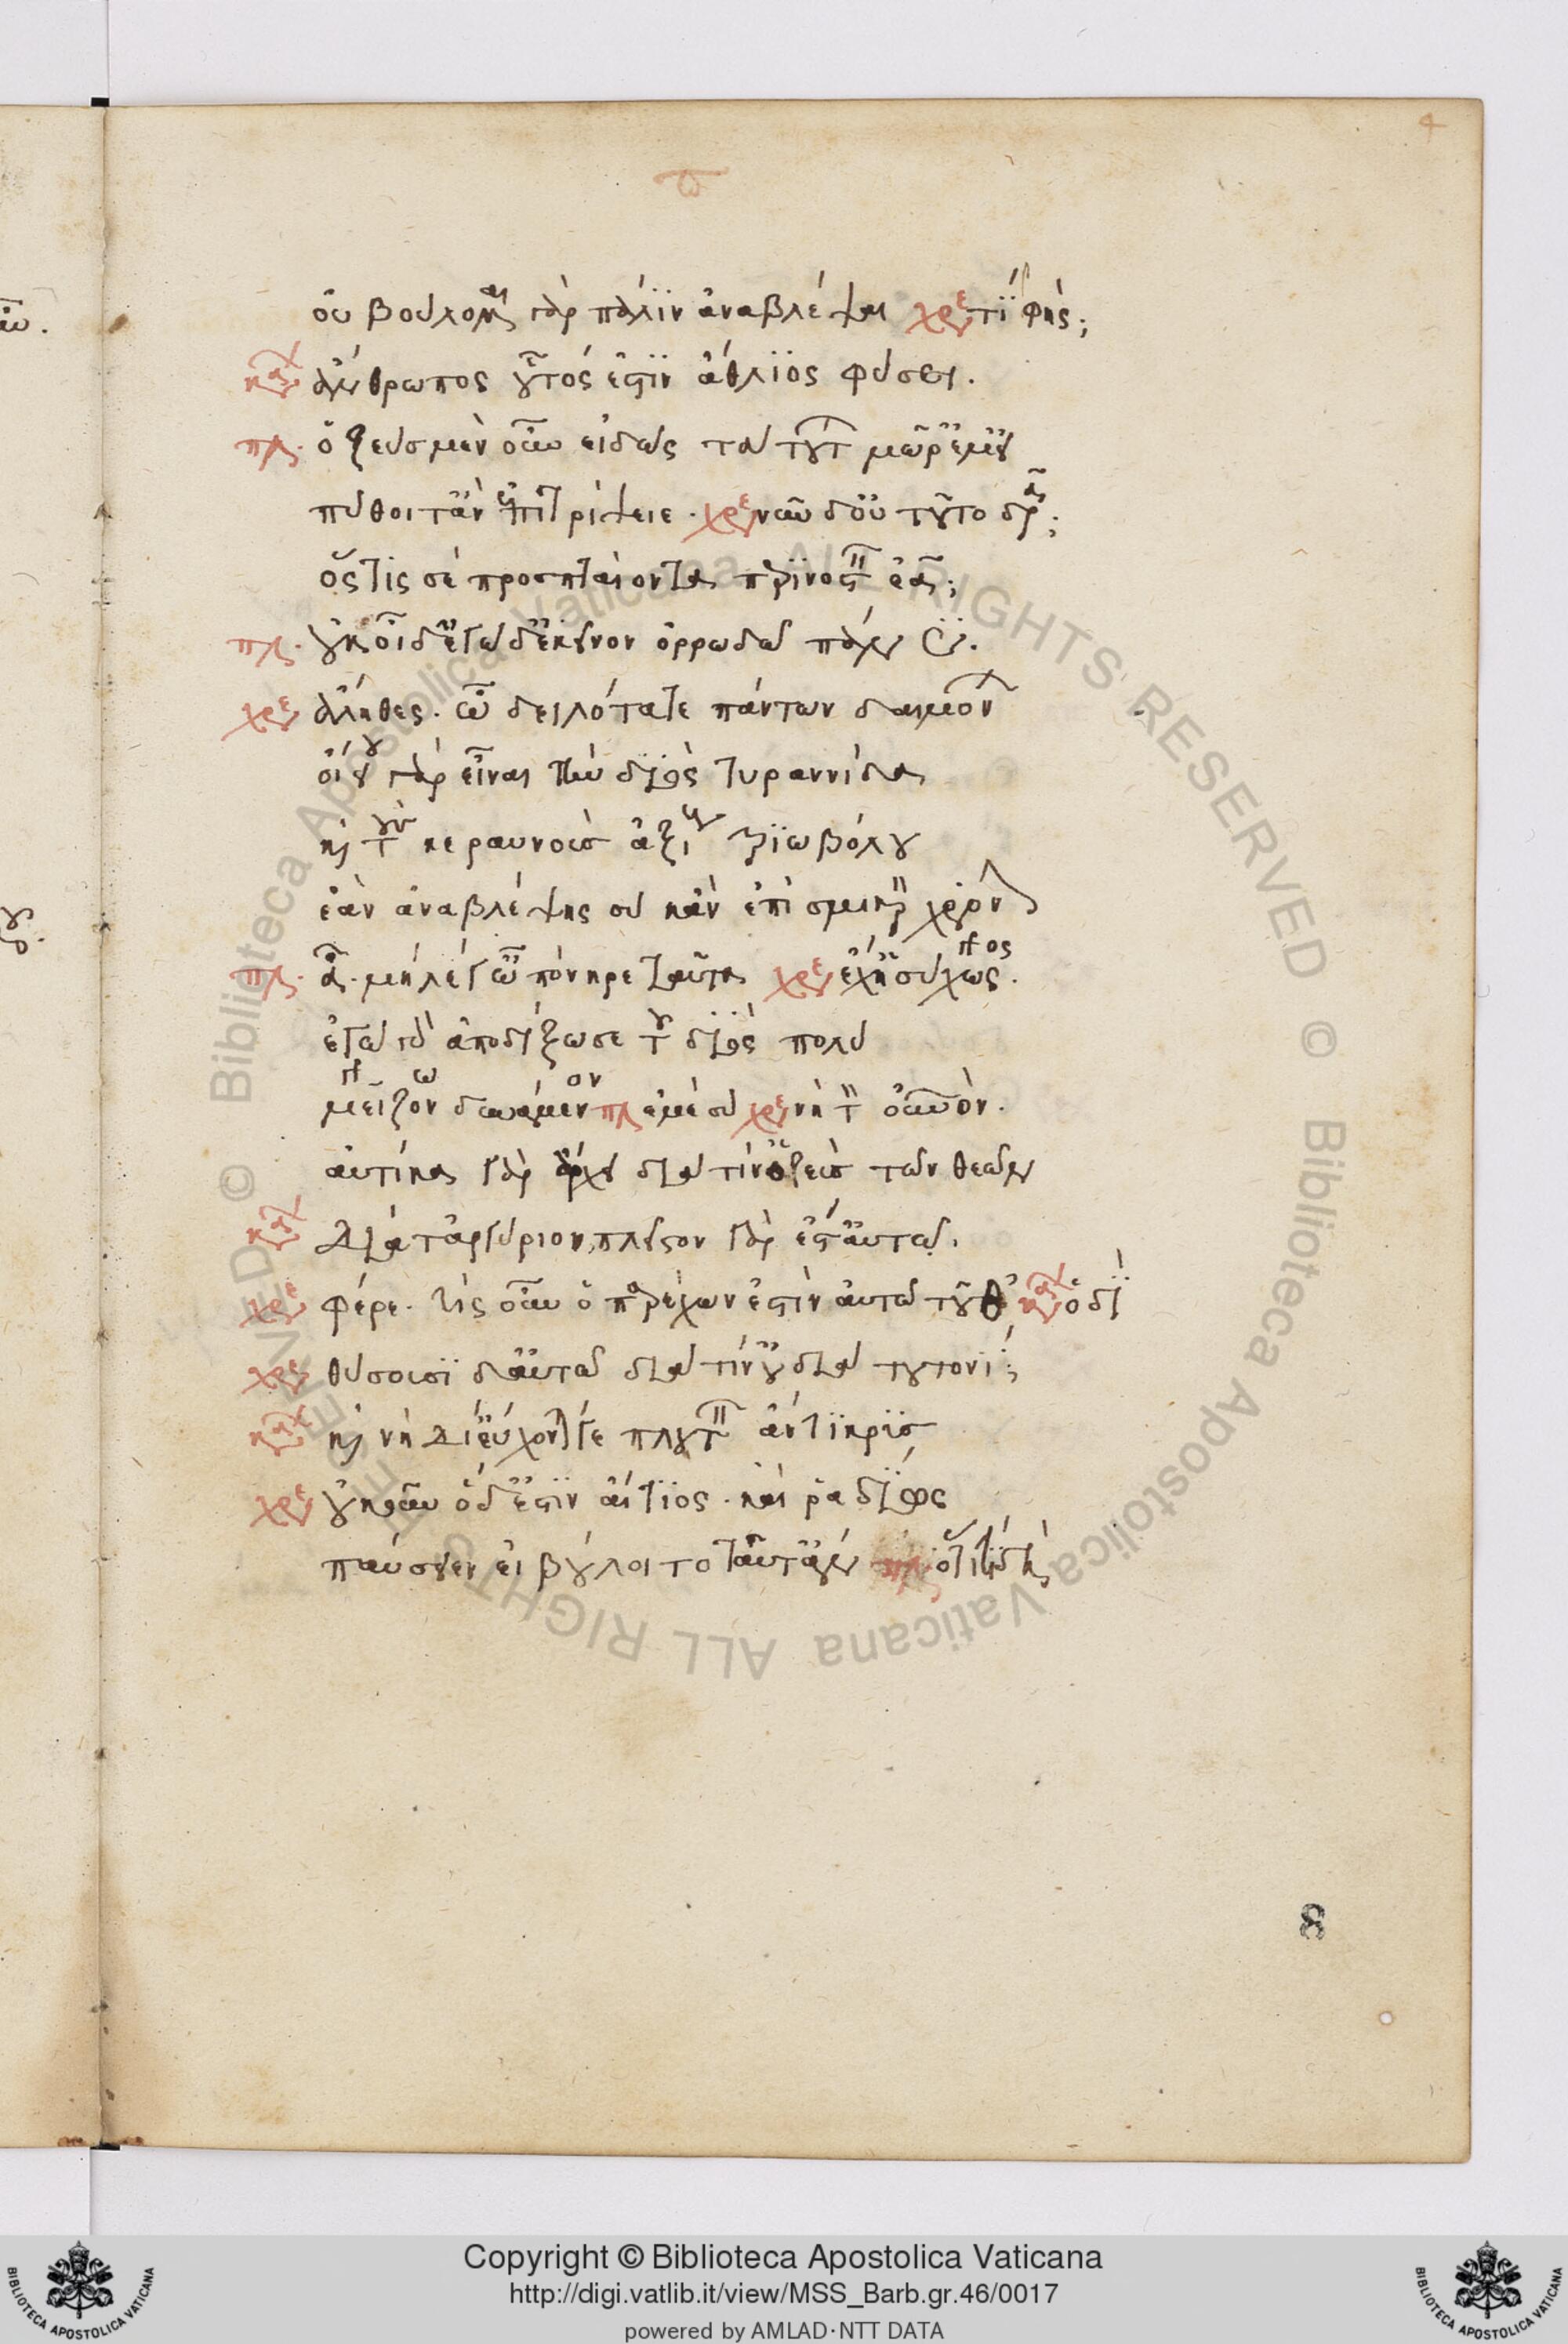 4
οὐ βούλομαι γὰρ πάλιν ἀναβλέψαι χρε τί φής;
καρ ἄνθρωπος οὗτός ἐστιν ἄθλιος φύσει.
πλ. ὁ ζεὺς μὲν οὖν εἰδὼς τὰ τούτ μῶρ' ἐμὲ
πύθοιτ' ἂν ἐπιτρίψειε. χρε νῦν δ' οὐ τοῦτο δρᾶ;
ὅστις σὲ προσπταίοντα περινοστ ἐᾶ;
πλ. οὐκ οἶδ' ἐγὼ δ' ἐκεῖνον ὀρρωδῶ πάνυ
χρε ἄληθες. ὦ δειλότατε πάντων δαιμόν
οἴει γὰρ εἶναι τὴν διὸς τυραννίδα
καὶ τοὺς κεραυνοὺς ἀξί τριωβόλου
ἐὰν ἀναβλέψης σὺ κἂν ἐπὶ σμικρ χρόν
πλ. ἆ. μὴ λέγ' ὦ πόνηρε ταῦτα χρε ἔχ' ἡσύχως.
ἐγὼ γὰρ ἀποδείξω σε τοῦ διὸς πολὺ
μεῖζον δυνάμενον πλ ἐμὲ σύ χρε νὴ τ οὐνόν.
αὐτίκα γὰρ ἄρχει διὰ τίν' ὁ ζεὺς τῶν θεῶν
καρ Διὰ τἀργύριον, πλεῖστον γάρ ἐστ' αὐτῶ.
χρε φέρε. τίς οὖν ὁ παρέχων ἐστὶν αὐτῶ τοῦθ' καρ ὁδὶ
χρε θύουσι δ' αὐτῶ διὰ τίν' οὐ διὰ τουτονί;
καρ καὶ νὴ Δί' εὔχονταί γε πλουτ ἄντικρυς
χρε οὔκουν ὅδ' ἐστὶν αἴτιος. καὶ ῥαδίως
παύσειεν εἰ βούλοιτο ταῦτ' ἂν πλ ὁτιὴ τί δὴ
8
© Biblioteca Apostolica Vaticana ALL RIGHTS RESERVED © Biblioteca Apostolica Vaticana ALL RIGHTS RESERVED
Copyright © Biblioteca Apostolica Vaticana
http://digi.vatlib.it/view/MSS_Barb.gr.46/0017
powered by AMLAD·NTT DATA
BIBLIOTECA APOSTOLICA VATICANA
BIBLIOTECA APOSTOLICA VATICANA